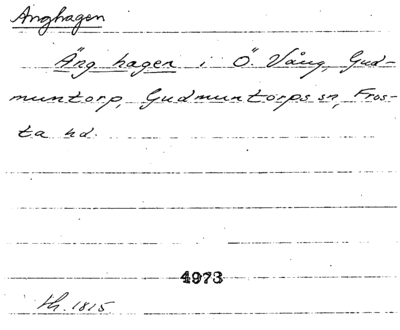 Änghagen
Äng hagen i Ö. Vång, Gud-
muntorp, Gudmuntorps sn, Fros-
ta hd.
4973
th. 1815